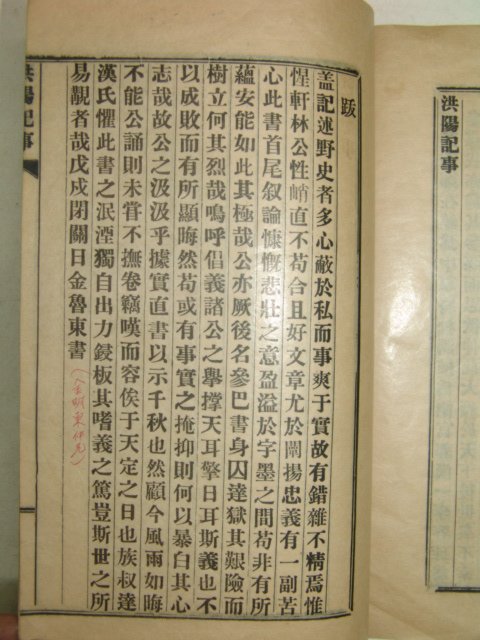 洪陽記事
跋
盖記述野史者多心蔽於私而事爽于實故有錯雜不精焉惟
惺軒林公性峭直不苟合且好文章尤於闡揚忠義有一副苦
心此書首尾叙論慷慨悲壯之意盈溢於字墨之間苟非有所
蘊安能如此其極哉公亦厥後名參巴書身囚達獄其艱險而
樹立何其烈哉嗚呼倡義諸公之擧撑天耳擎日耳斯義也不
以成敗而有所顯晦然苟或有事實之掩抑則何以暴白其心
志哉故公之汲汲乎據實直書以示千秋也然顧今風雨如晦
不能公誦則未甞不撫卷竊嘆而容俟于天定之日也族叔達
漢氏懼此書之泯湮獨自出力鋟板其嗜義之篤豈斯世之所
易覯者哉戊戌閉關日金魯東書
洪陽記事